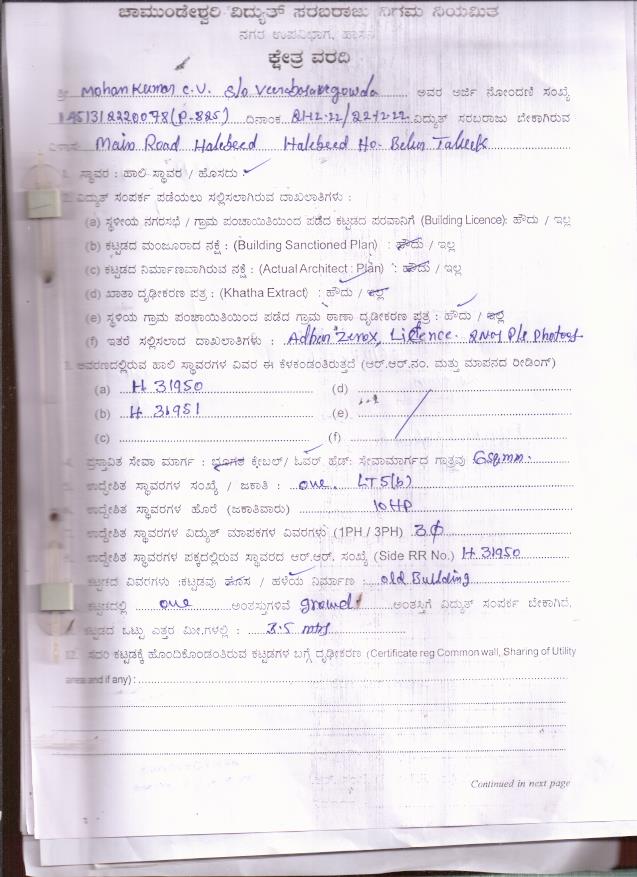 ಚಾಮುಂಡೇಶ್ವರಿ ವಿದ್ಯುತ್ ಸರಬರಾಜು ನಿಗಮ ನಿಯಮಿತ
ನಗರ ಉಪವಿಭಾಗ, ಹಾಸನ
ಕ್ಷೇತ್ರ ವರದಿ
ಶ್ರೀ Mohan Kumar C.V. S/o Veerabasavegowda ಅವರ ಅರ್ಜಿ ನೋಂದಣಿ ಸಂಖ್ಯೆ
(P-825) ದಿನಾಂಕ ವಿದ್ಯುತ್ ಸರಬರಾಜು ಬೇಕಾಗಿರುವ
Main Road Halebeed Halebeed Ho. Belur Taluk
1. ಸ್ಥಾವರ : ಹಾಲಿ ಸ್ಥಾವರ / ಹೊಸದು :
2. ವಿದ್ಯುತ್ ಸಂಪರ್ಕ ಪಡೆಯಲು ಸಲ್ಲಿಸಲಾಗಿರುವ ದಾಖಲಾತಿಗಳು :
(a) ಸ್ಥಳೀಯ ನಗರಸಭೆ / ಗ್ರಾಮ ಪಂಚಾಯಿತಿಯಿಂದ ಪಡೆದ ಕಟ್ಟಡದ ಪರವಾನಿಗೆ (Building Licence): ಹೌದು / ಇಲ್ಲ
(b) ಕಟ್ಟಡದ ಮಂಜೂರಾದ ನಕ್ಷೆ : (Building Sanctioned Plan) : ಹೌದು / ಇಲ್ಲ
(c) ಕಟ್ಟಡದ ನಿರ್ಮಾಣವಾಗಿರುವ ನಕ್ಷೆ : (Actual Architect : Plan) : ಹೌದು / ಇಲ್ಲ
(d) ಖಾತಾ ದೃಢೀಕರಣ ಪತ್ರ : (Khatha Extract) : ಹೌದು / ಇಲ್ಲ
(e) ಸ್ಥಳಿಯ ಗ್ರಾಮ ಪಂಚಾಯಿತಿಯಿಂದ ಪಡೆದ ಗ್ರಾಮ ಠಾಣಾ ದೃಡೀಕರಣ ಪತ್ರ : ಹೌದು / ಇಲ್ಲ
(f) ಇತರೆ ಸಲ್ಲಿಸಲಾದ ದಾಖಲಾತಿಗಳು : Zerox, Licence.
3. ಆವರಣದಲ್ಲಿರುವ ಹಾಲಿ ಸ್ಥಾವರಗಳ ವಿವರ ಈ ಕೆಳಕಂಡಂತಿರುತ್ತದೆ (ಆರ್.ಆರ್.ನಂ. ಮತ್ತು ಮಾಪನದ ರೀಡಿಂಗ್)
(a) H 31950 (d)
(b) H 31951 (e)
(c) (f)
ಪ್ರಸ್ತಾವಿತ ಸೇವಾ ಮಾರ್ಗ : ಭೂಗತ ಕೇಬಲ್/ ಓವರ್ ಹೆಡ್: ಸೇವಾಮಾರ್ಗದ ಗಾತ್ರವು : 6sqmm.
ಉದ್ದೇಶಿತ ಸ್ಥಾವರಗಳ ಸಂಖ್ಯೆ / ಜಕಾತಿ : one. LT5(b)
ಉದ್ದೇಶಿತ ಸ್ಥಾವರಗಳ ಹೊರೆ (ಜಕಾತಿವಾರು) 10HP
ಉದ್ದೇಶಿತ ಸ್ಥಾವರಗಳ ವಿದ್ಯುತ್ ಮಾಪಕಗಳ ವಿವರಗಳು (1PH / 3PH) 3Φ
ಉದ್ದೇಶಿತ ಸ್ಥಾವರಗಳ ಪಕ್ಕದಲ್ಲಿರುವ ಸ್ಥಾವರದ ಆರ್.ಆರ್. ಸಂಖ್ಯೆ (Side RR No.) H 31950
ಕಟ್ಟಡದ ವಿವರಗಳು :ಕಟ್ಟಡವು ಹೊಸ / ಹಳೆಯ ನಿರ್ಮಾಣ : old Building
ಕಟ್ಟಡದಲ್ಲಿ one ಅಂತಸ್ತುಗಳಿವೆ ground ಅಂತಸ್ತಿಗೆ ವಿದ್ಯುತ್ ಸಂಪರ್ಕ ಬೇಕಾಗಿದೆ.
ಕಟ್ಟಡದ ಒಟ್ಟು ಎತ್ತರ ಮೀ.ಗಳಲ್ಲಿ : 3.5 mtrs
12. ಸದರಿ ಕಟ್ಟಡಕ್ಕೆ ಹೊಂದಿಕೊಂಡಂತಿರುವ ಕಟ್ಟಡಗಳ ಬಗ್ಗೆ ದೃಢೀಕರಣ (Certificate reg Common wall, Sharing of Utility
area and if any) :
Continued in next page